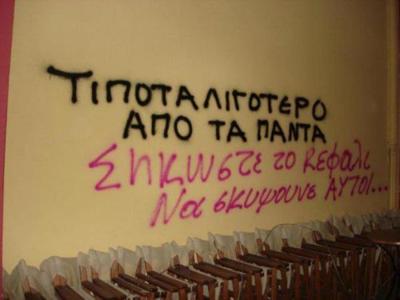 ΤΙΠΟΤΑ ΛΙΓΟΤΕΡΟ
ΑΠΟ ΤΑ ΠΑΝΤΑ
Σηκωστε το κεφαλι
Να σκυψουνε ΑΥΤΟΙ...